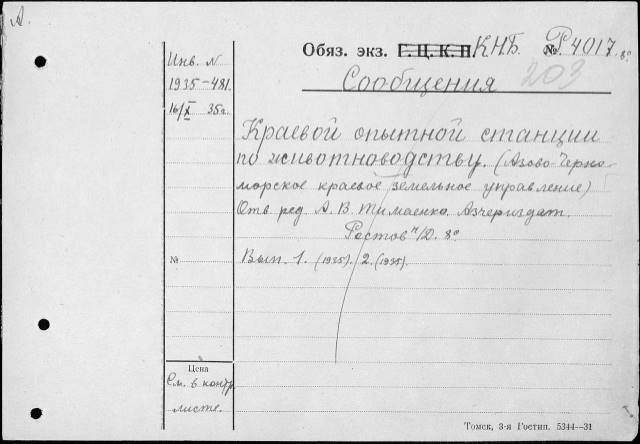 А.
Обяз. экз. Г. Ц. К. П. КНБ. № Р4017. 8º
Инв. №
1935—481.
16/X 35 г.
Сообщения 203
Краевой опытной станции
по животноводству. (Азово-Черно-
морское краевое земельное управление)
Отв. ред. А. В. Тимаенко. Азчериздат.
Ростов н/Д. 8º
№
Вып. 1. (1935). 2. (1935).
Цена
См. в контр.
листе.
Томск, 3-я Гостип. 5344—31